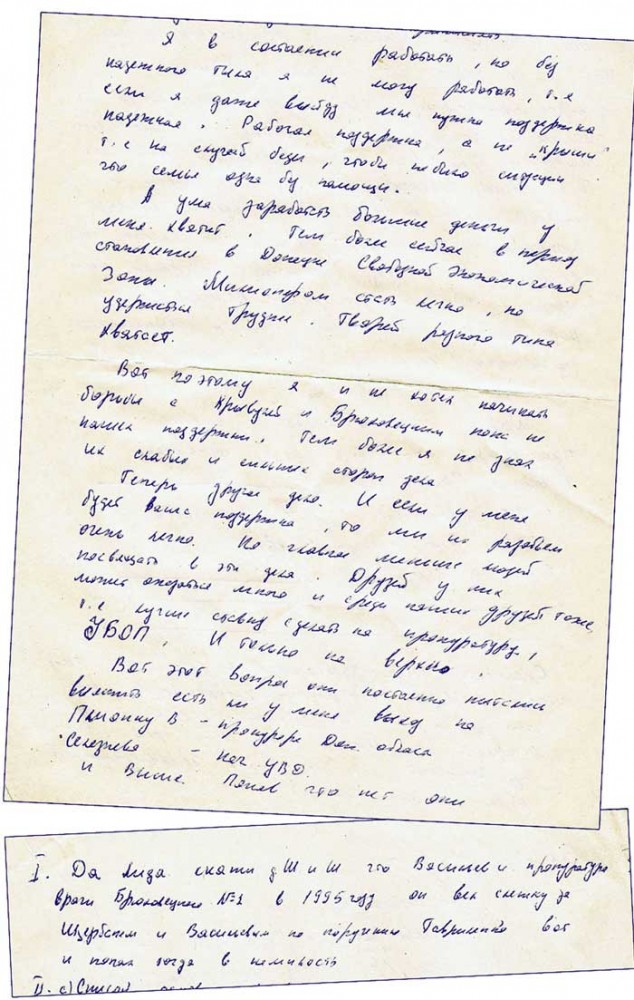 Я в состоянии работать, но без
надежного тыла я не могу работать, т.е
если я даже выйду мне нужна поддержка
надежная. Рабочая поддержка, а не „крыши"
т.е на случай беды, чтобы не было ситуации
что семья одна без помощи.
А ума заработать большие деньги у
меня хватит. Тем более сейчас в период
становления в Донецке Свободной экономической
Зоны. Миллионером стать легко, но
удержаться трудней. Тварей разного типа
хватает.
Вот поэтому я и не хотел начинать
борьбы с и Брюховецким пока не
нашел поддержки. Тем более я не знал
их слабых и сильных сторон дела
Теперь другое дело. И если у меня
будет ваша поддержка, то мы их разобьем
очень легко. Но главное меньше людей
посвящать в эти дела. Друзей у них
может оказаться много и среди наших друзей тоже,
т.е лучше сделать на прокуратуру,
УБОП, И только на верхно.
Вот этот вопрос они постоянно пытались
выяснить есть ли у меня выход на
Пшонку В – прокурора Дон. области
Селезнева – нач УВД.
и Выше. Поняв что нет они
I. Да Лиза скажи дШ и Ш что Васильев и прокуратура
враги Брюховецкого №1 в 1995 году он вел слежку за
Щербатым и Васильевым по поручению Гавриленко вот
и попал тогда в немилость
II. а) Список